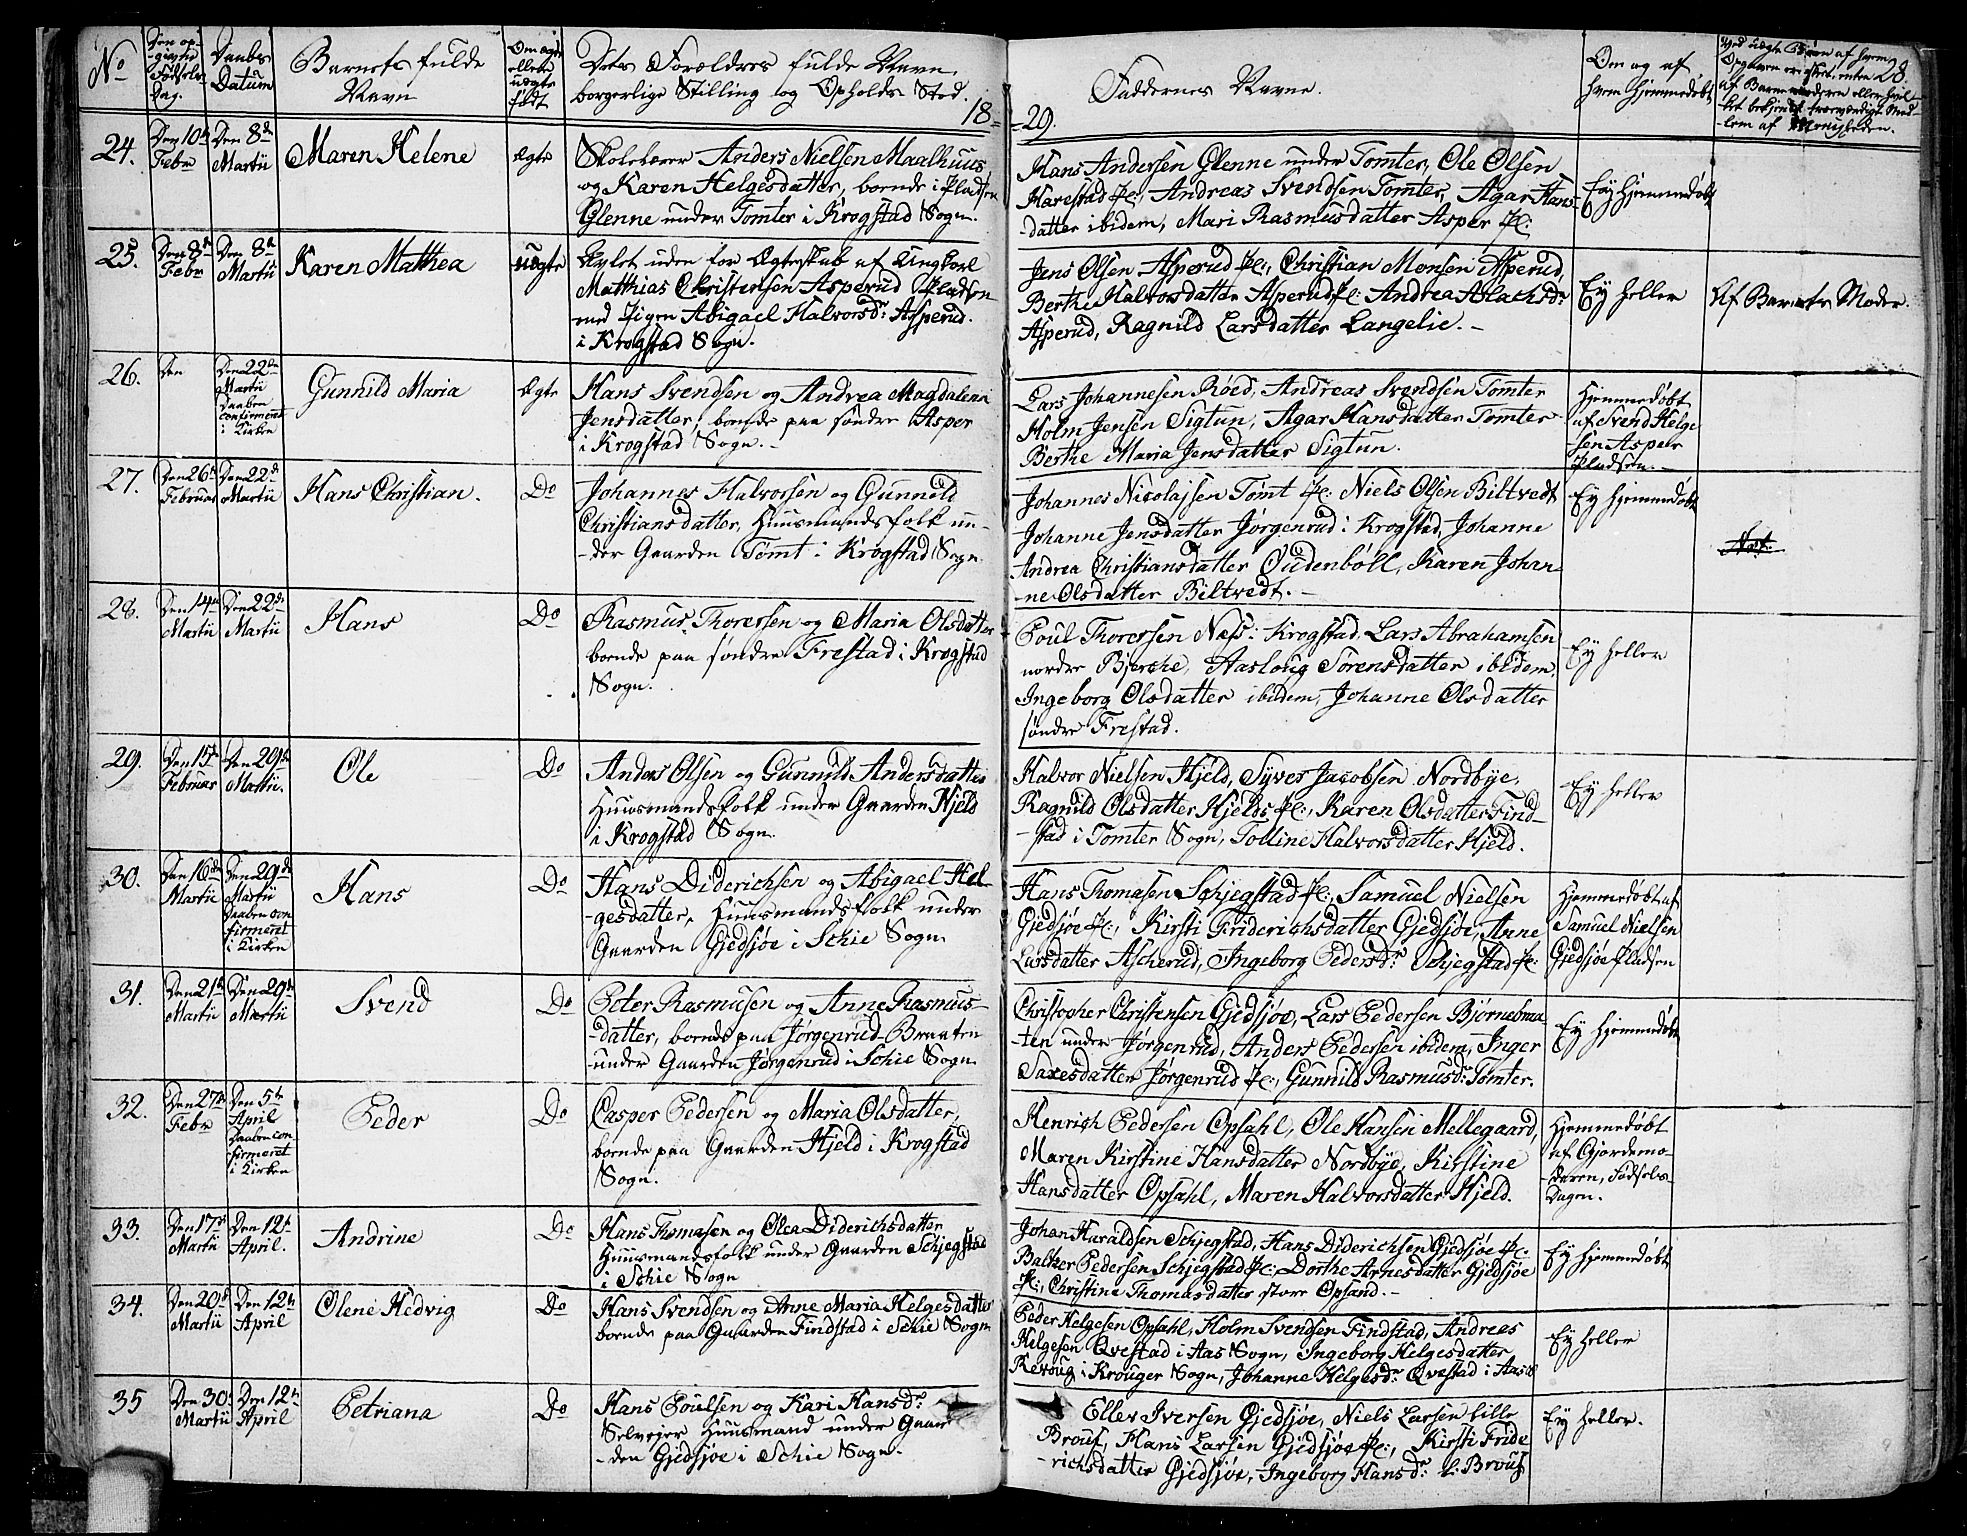 No
Den op-
givne
Fødsels
Dag.
Daabs
Datum
Barnets fulde
Navn
Om ægte
eller
uægte
født
Dets Forældres fulde Navn,
borgerlige Stilling og Opholds Sted.
18-
24.
Den 10de
Febr
Den 8de
Martii
Maren Helene
Ægte
Skolelærer Anders Nielsen Maalhuus
og Karen Helgesdatter, boende i Pladsen
Glenne under Tomter i Krogstad Sogn.
25.
Den 8de
Febr
Den 8de
Martii
Karen Matthea
uægte
Avlet uden for Ægteskab af Ungkarl
Matthias Christensen Asperud Pladsen
med Pigen Abigael Halvorsdr: Asperud.
i Krogstad Sogn.
26.
Den
Den 22de
Martii
Daaben
confirmeret
i Kirken
Gunnild Maria
Ægte
Hans Svendsen og Andrea Magdalena
Jensdatter, boende paa søndre Asper
i Krogstad Sogn.
27.
Den 26de
Februar
Den 22de
Martii
Hans Christian.
Do
Johannes Halvorsen og Gunnild
Christiansdatter, Huusmandsfolk un-
-der Gaarden Tømt i Krogstad Sogn.
28.
Den 14de
Martii
Den 22de
Martii
Hans
Do
Rasmus Thorersen og Maria Olsdatter
boende paa søndre Frestad i Krogstad
Sogn.
29.
Den 15de
Februar
Den 29de
Martii.
Ole
Do
Anders Olsen og Gunnild Andersdatter
Huusmandsfolk under Gaarden Hjeld
i Krogstad Sogn.
30.
Den 16de
Martii
Den 29de
Martii
Daaben con
firmeret
i Kirken
Hans
Do
Hans Diderichsen og Abigael Hel-
-gesdatter, Huusmandsfolk under
Gaarden Gjedsjøe i Schie Sogn.
31.
Den 21de
Martii
Den 29de
Martii
Svend
Do
Peter Rasmusen og Anne Rasmus-
-datter, boende paa Jørgenrud-Braaten
under Gaarden Jørgenrud i Schie Sogn.
32.
Den 27de
Febr
Den 5te
April
Daaben con
firmeret
i Kirken
Peder
Do
Casper Pedersen og Maria Olsdatter,
boende paa Gaarden Hjeld i Krogstad
Sogn.
33.
Den 17de
Martii
Den 12te
April.
Andrine
Do
Hans Thomasen og Olea Diderichsdatter
Huusmandsfolk under Gaarden Schjegstad
i Schie Sogn
34.
Den 20de
Martii
Den 12te
April
Olene Hedvig
Do
Hans Svendsen og Anne Maria Helgesdatter
boende paa Gaarden Findstad i Schie Sogn
35
Den 30.
Martii
Den 12te
April
Petriana
Do
Hans Poulsen og Kari Hansdr.
Selveier Huusmand under Gaar
-den Gjedsjøe i Schie Sogn.
-29.
Faddernes Navne.
Om og af
hvem hjemmedøbt
Ved uægte Børn af hvem
Opgaven er skeet, enten 28.
af Barnemoderen eller hvil-
ket bekjendt troeværdigt Med-
-lem af Menigheden.
Hans Andersen Glenne under Tomter, Ole Olsen
Harestad Pl:, Andreas Svendsen Tomter, Agar Hans-
datter ibidem, Mari Rasmusdatter Asper Pl:
Ey hjemmedøbt
Jens Olsen Asperud Pl:, Christian Monsen Asperud,
Berthe Halvorsdatter Asperud Pl: Andrea Aslachsdr
Asperud, Ragnild Larsdatter Langelie.-
Ey heller
Af Barnets Moder.
Lars Johannesen Röed, Andreas Svendsen Tomter
Holm Jensen Sigtun, Agar Hansdatter Tomter
Berthe Maria Jensdatter Sigtun.
Hjemmedøbt
af Svend Helge
-sen Asper
Pladsen.-
Johannes Nicolajsen Tømt Pl: Niels Olsen Biltvedt
Johanne Jensdatter Jørgenrud i Krogstad, Johanne
Andrea Christiansdatter Oudenböll, Karen Johan
-ne Olsdatter Biltvedt.-
Ey hjemmedøbt
Poul Thorersen Næss i Krogstad, Lars Abrahamsen
nordre Bjerche, Aasloug Sörensdatter ibidem,
Ingeborg Olsdatter ibidem, Johanne Olsdatter
söndre Frestad.
Ey heller
Halvor Nielsen Hjeld, Syver Jacobsen Nordbye,
Ragnild Olsdatter Hjelds Pl:, Karen Olsdatter Find-
-stad i Tomter Sogn, Tolline Halvorsdatter Hjeld.
Ey heller
Hans Thomasen Schjegstad Pl:, Samuel Nielsen
Gjedsjøe Pl:, Kirsti Friderichsdatter Gjedsjøe, Anne
Larsdatter Ascherud, Ingeborg Pedersdr. Schjegstad Pl:
Hjemmedøbt af
Samuel Nielsen
Gjedsjøe Pladsen
Christopher Christensen Gjedsjøe, Lars Pedersen Bjørnebraa-
-ten under Jørgenrud, Anders Pedersen ibidem, Inger
Saxesdatter Jørgenrud Pl:, Gunnild Rasmusd: Tomter.
Ey hjemmedøbt
Henrich Pedersen Opsahl, Ole Hansen Mellegaard,
Maren Kirstine Hansdatter Nordbye, Kirstine
Hansdatter Opsahl, Maren Halvorsdatter Hjeld.
Hjemmedøbt
af Gjordemo-
deren, Fødsels-
Dagen.
Johan Haraldsen Schjegstad, Hans Diderichsen Gjedsjøe Pl:
Baltzer Pedersen Schjegstad Pl:, Dorthe Arnesdatter Gjedsjøe
Pl:, Christine Thomasdatter store Opsand.-
Ey hjemmedøbt
Peder Helgesen Opsahl, Holm Svendsen Findstad, Andreas
Helgesen Qvestad i Aas Sogn, Ingeborg Helgesdatter
Revoug i Krouger Sogn, Johanne Helgesdr: Qvestad i Aas S
Ey heller
Ellev Iversen Gjedsjøe, Niels Larsen lille
Brouf, Hans Larsen Gjedsjøe Pl:, Kirsti Fride
-richsdatter Gjedsjøe, Ingeborg Hansdr. l: Brouf
Ey heller.